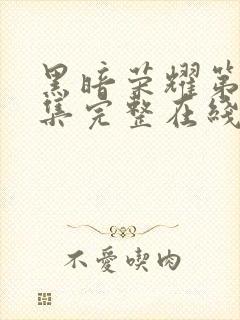 黑暗荣耀第
集完整在线
不愛喫肉